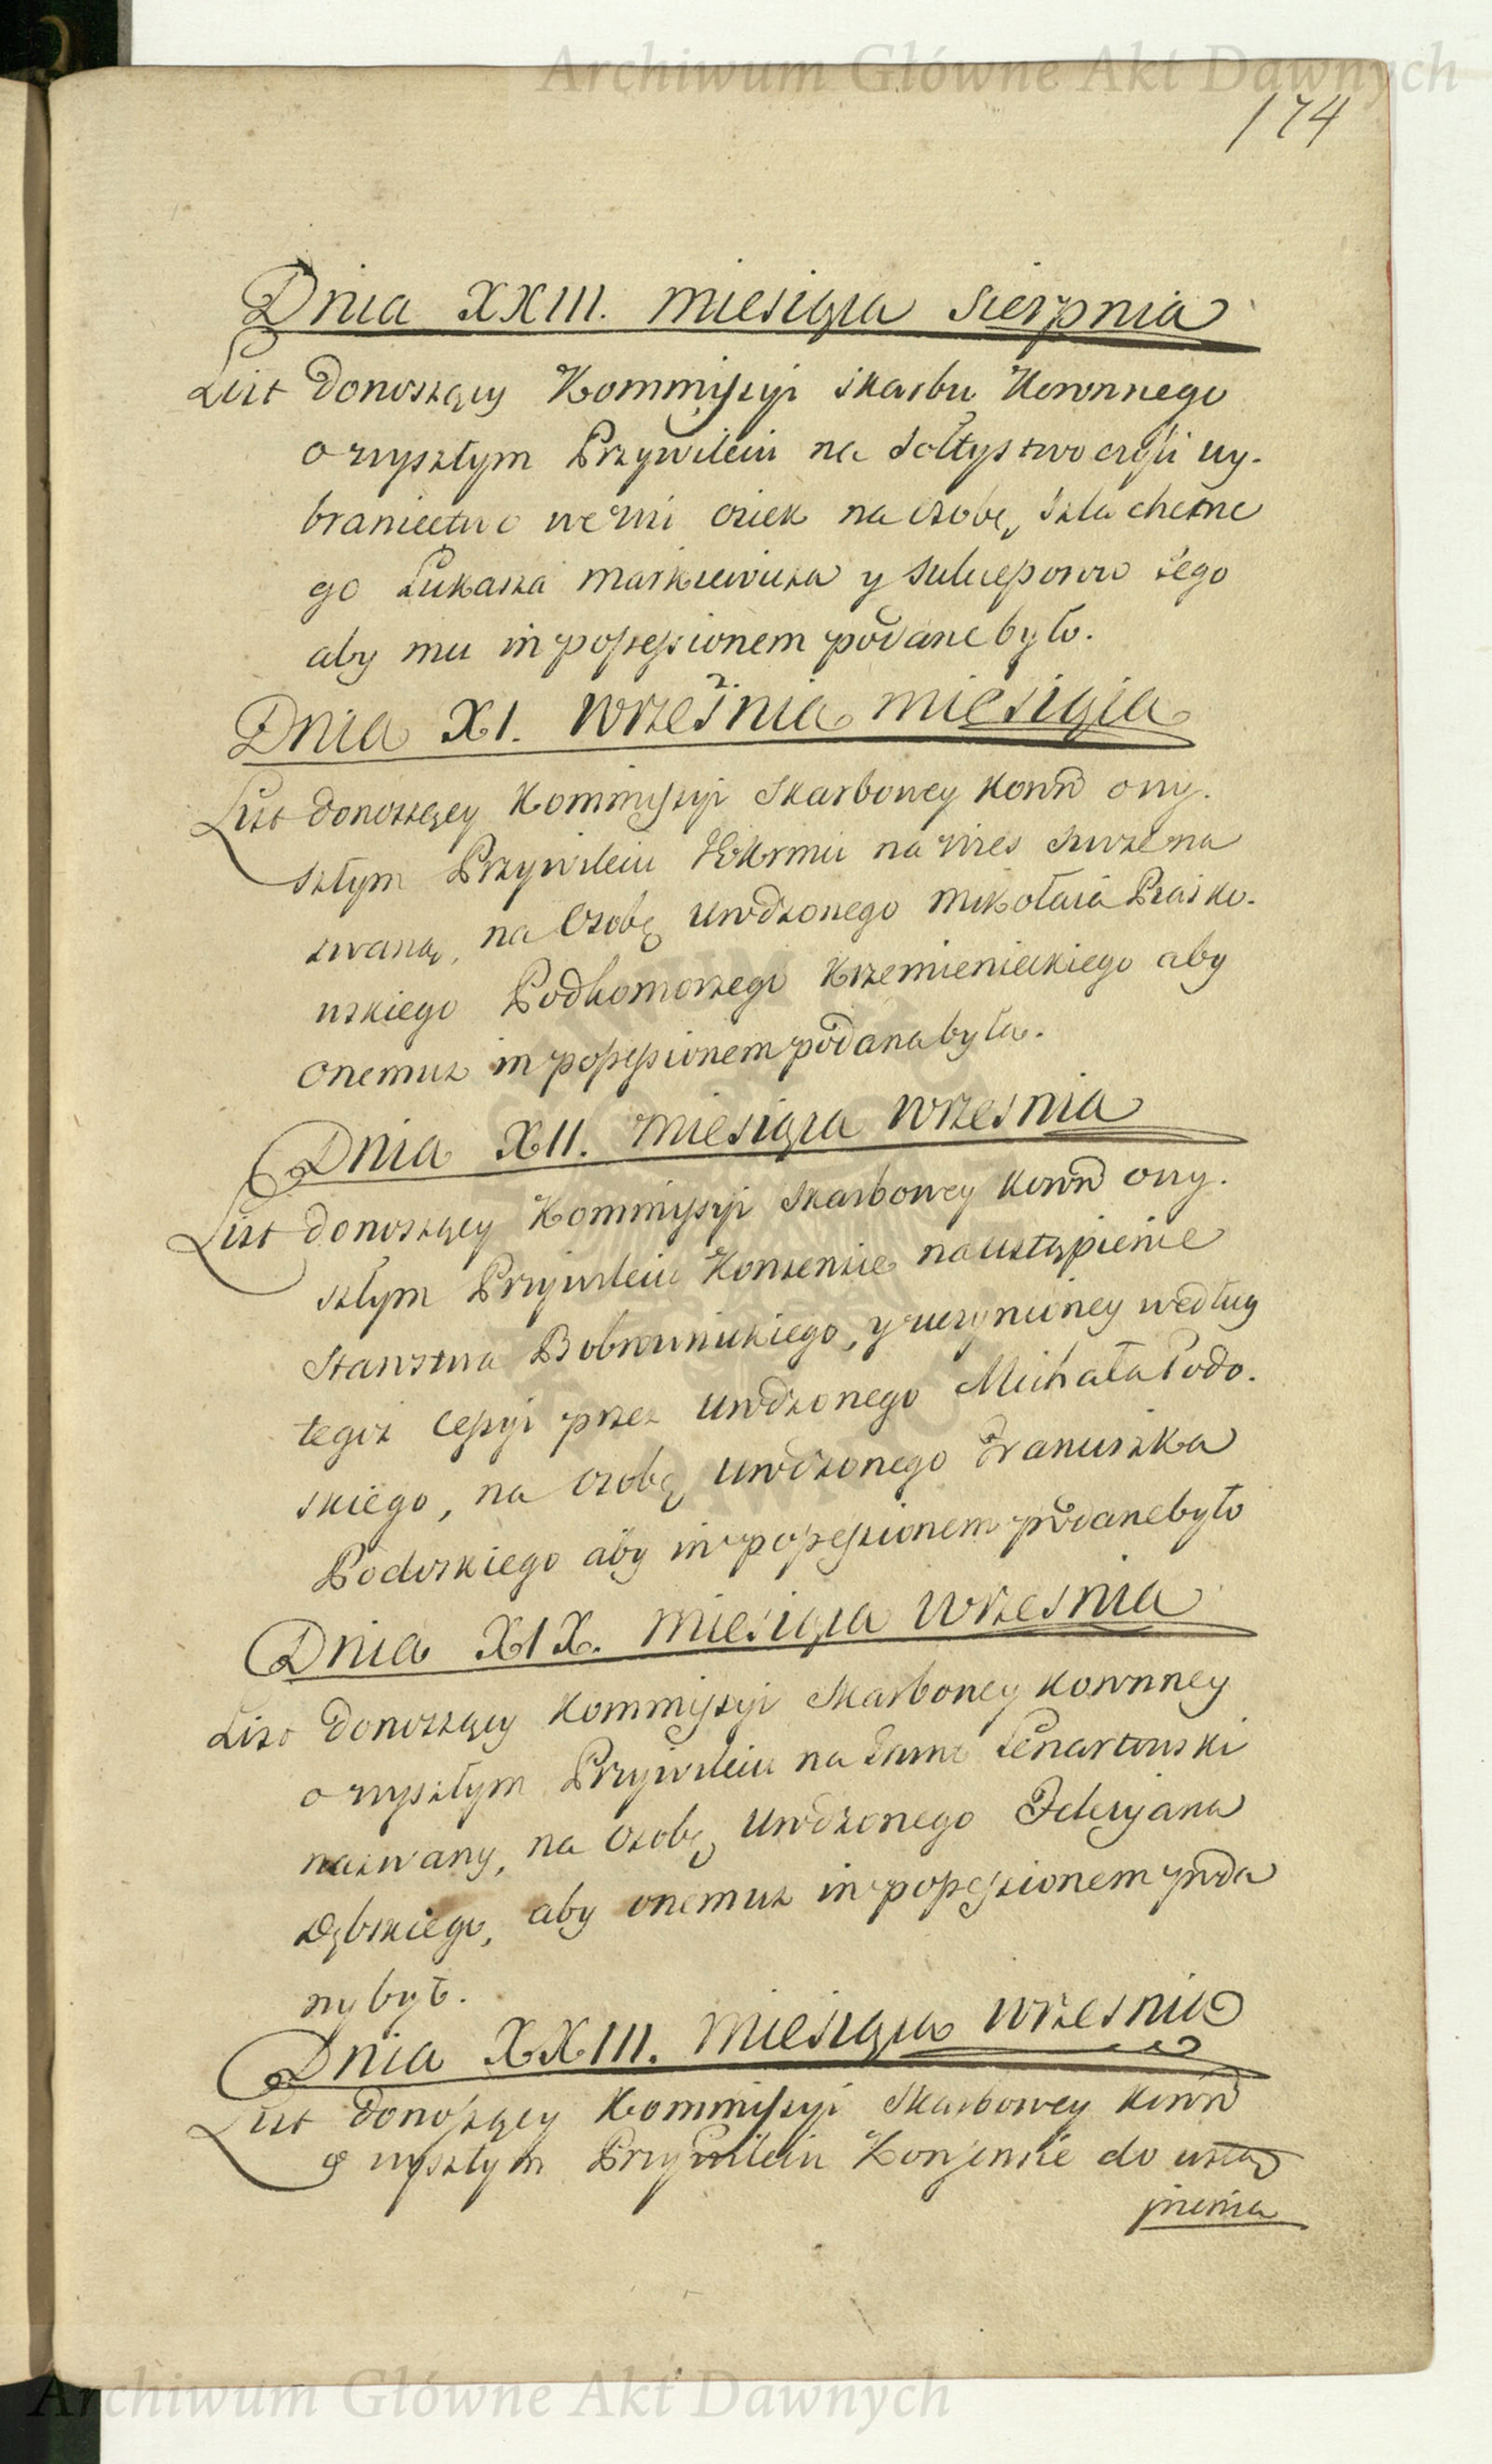 Archiwum Główne Akt Dawnych
174
Dnia XXIII. miesiąca sierpnia
List donoszący Kommissyi skarbu Koronnego
o wyszłym Przywileiu na sołtystwo czyli wy-
braniectwo we wsi osiek na osobę szlachetne
go Łukasza Markiewicza y sukcessorow iego
aby mu in possessionem podane było.
Dnia XI. Września miesiąca
List donoszący Kommissyi Skarbowey Koron o wy-
szłym Przywileiu na wies
zwaną, na Osobę Urodzonego Mikołaia Praśko-
wskiego Podkomorzego Krzemienieckiego aby
onemuz in possessionem podana była.
Dnia XII. miesiąca Wrzesnia
List donoszący Kommissyi Skarbowey koron o wy-
szłym Przywileiu Konsensie na ustąpienie
Starostwa Bobrownickiego, y uczynioney według
tegoz Cessyi przez Urodzonego Michała Podo-
skiego, na Osobę Urodzonego Franciszka
Podoskiego aby in possessionem podane było
Dnia XIX. miesiąca Wrzesnia
List donoszący Kommissyi Skarbowey koronney
o wyszłym Przywileiu na Lenartowski
nazwany, na Osobę Urodzonego Felicyana
Dąbskiego, aby onemuz in possessionem poda
ny był.
Dnia XXIII. miesiąca wrzesnia
List donoszący Kommissyi Skarbowey koron
o wyszłym Przywileiu Konsensie do ustą
pienia
Archiwum Główne Akt Dawnych